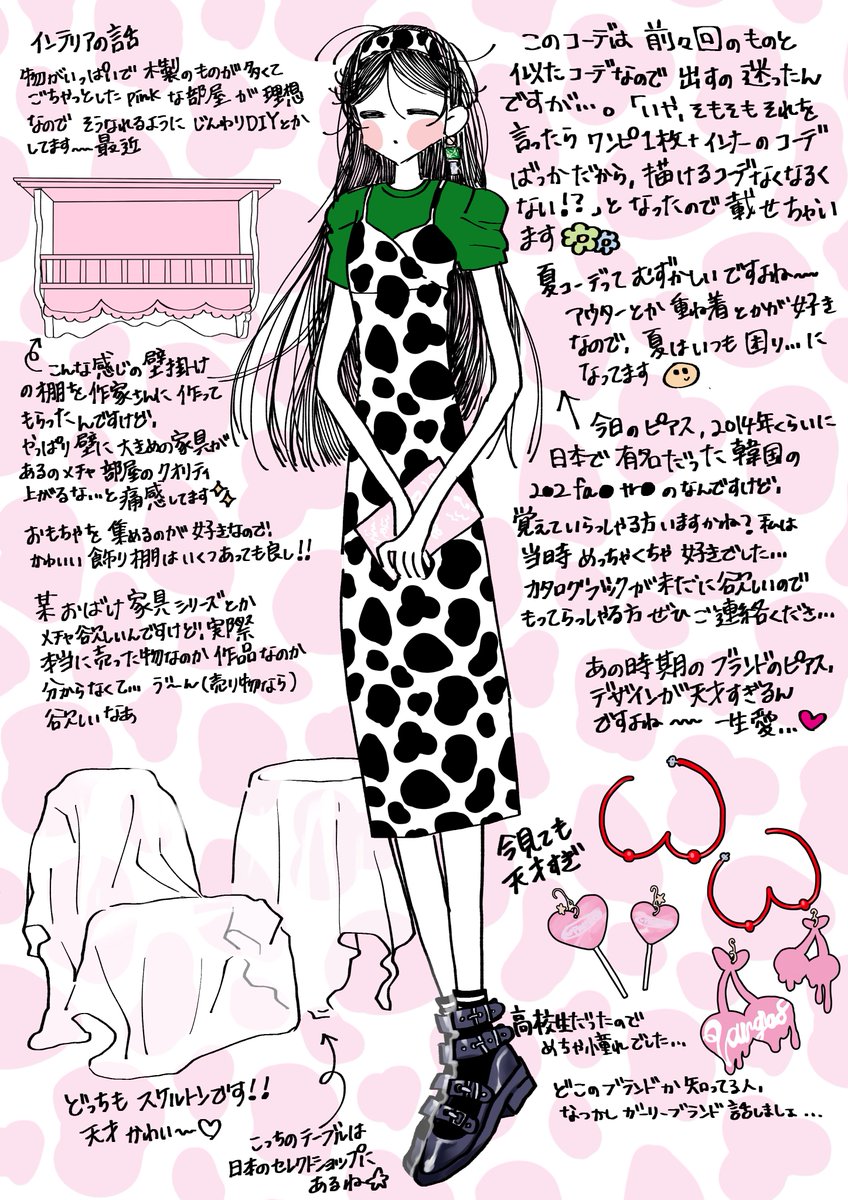 インテリアの話
物がいっぱいで木製のものが多くて
ごちゃっとしたpinkな部屋が理想
なのでそうなれるようにじんわりDIYとか
してます〜最近
こんな感じの壁掛け
の棚を作家さんに作って
もらったんですけど、
やっぱり壁に大きめの家具が
あるのメチャ部屋のクオリティ
上がるな…と痛感してます
おもちゃを集めるのが好きなので、
かわいい飾り棚はいくつあっても良し!!
某おばけ家具シリーズとか
メチャ欲しいんですけど、実際
本当に売った物なのか作品なのか
分からなくて… う〜ん(売り物なら)
欲しいなあ
どっちもスケルトンです!!
天才かわい〜♡
こっちのテーブルは
日本のセレクトショップに
あるね☆
このコーデは前々回のものと
似たコーデなので出すの迷ったん
ですが…。「いや、そもそもそれを
言ったらワンピ1枚+インナーのコーデ
ばっかだから、描けるコーデなくなるく
ない!?」となったので載せちゃい
ます
夏コーデってむずかしいですよね〜
アウターとか重ね着とかが好き
なので、夏はいつも困り…に
なってます
今日のピアス、2014年くらいに
日本で有名だった韓国の
202fa●tr●のなんですけど、
覚えていらっしゃる方いますかね?私は
当時めっちゃくちゃ好きでした…
カタログブックが未だに欲しいので
もってらっしゃる方ぜひご連絡くださ…
あの時期のブランドのピアス、
デザインが天才すぎるん
ですよね〜 一生愛…♥
今見ても
天才すぎ
高校生だったので
めちゃ憧れでした…
どこのブランドか知ってる人、
なつかしガーリーブランド話しましょ…